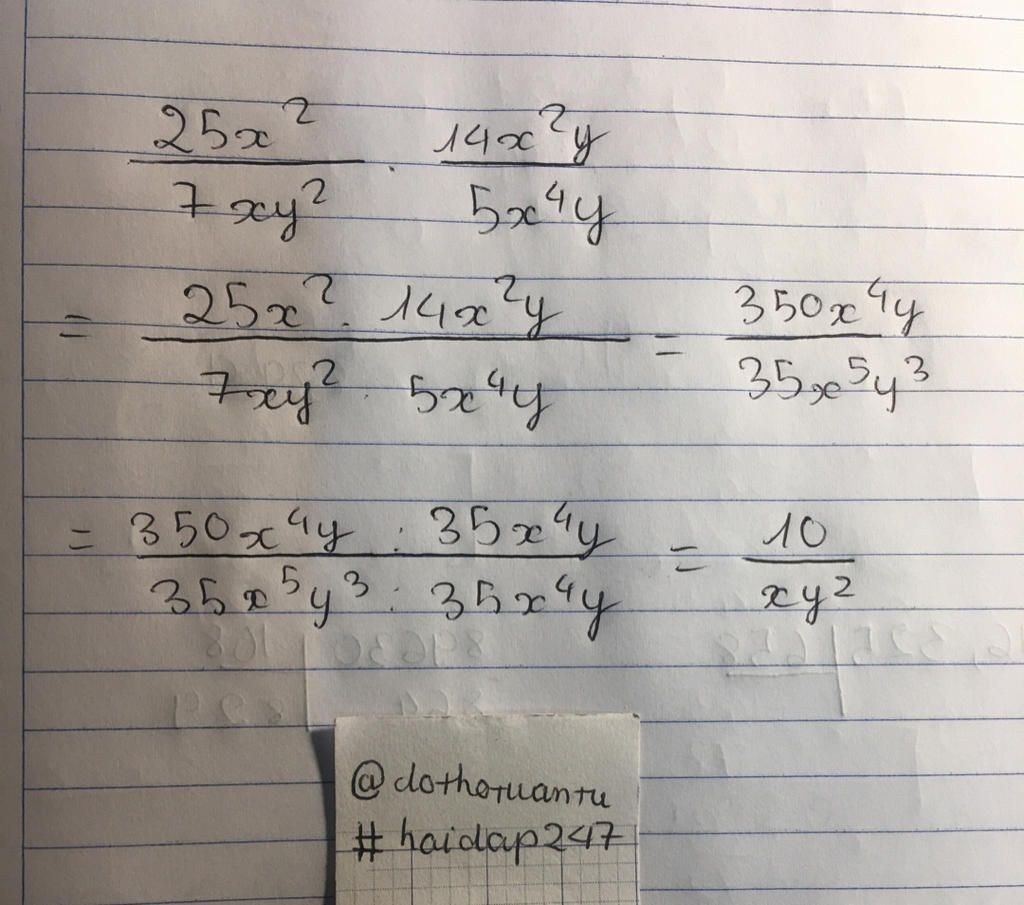 25x² / 7xy² . 14x²y / 5x⁴y
= 25x² . 14x²y / 7xy² . 5x⁴y = 350x⁴y / 35x⁵y³
= 350x⁴y : 35x⁴y / 35x⁵y³ : 35x⁴y = 10 / xy²
@dothotuantu
#haidap247